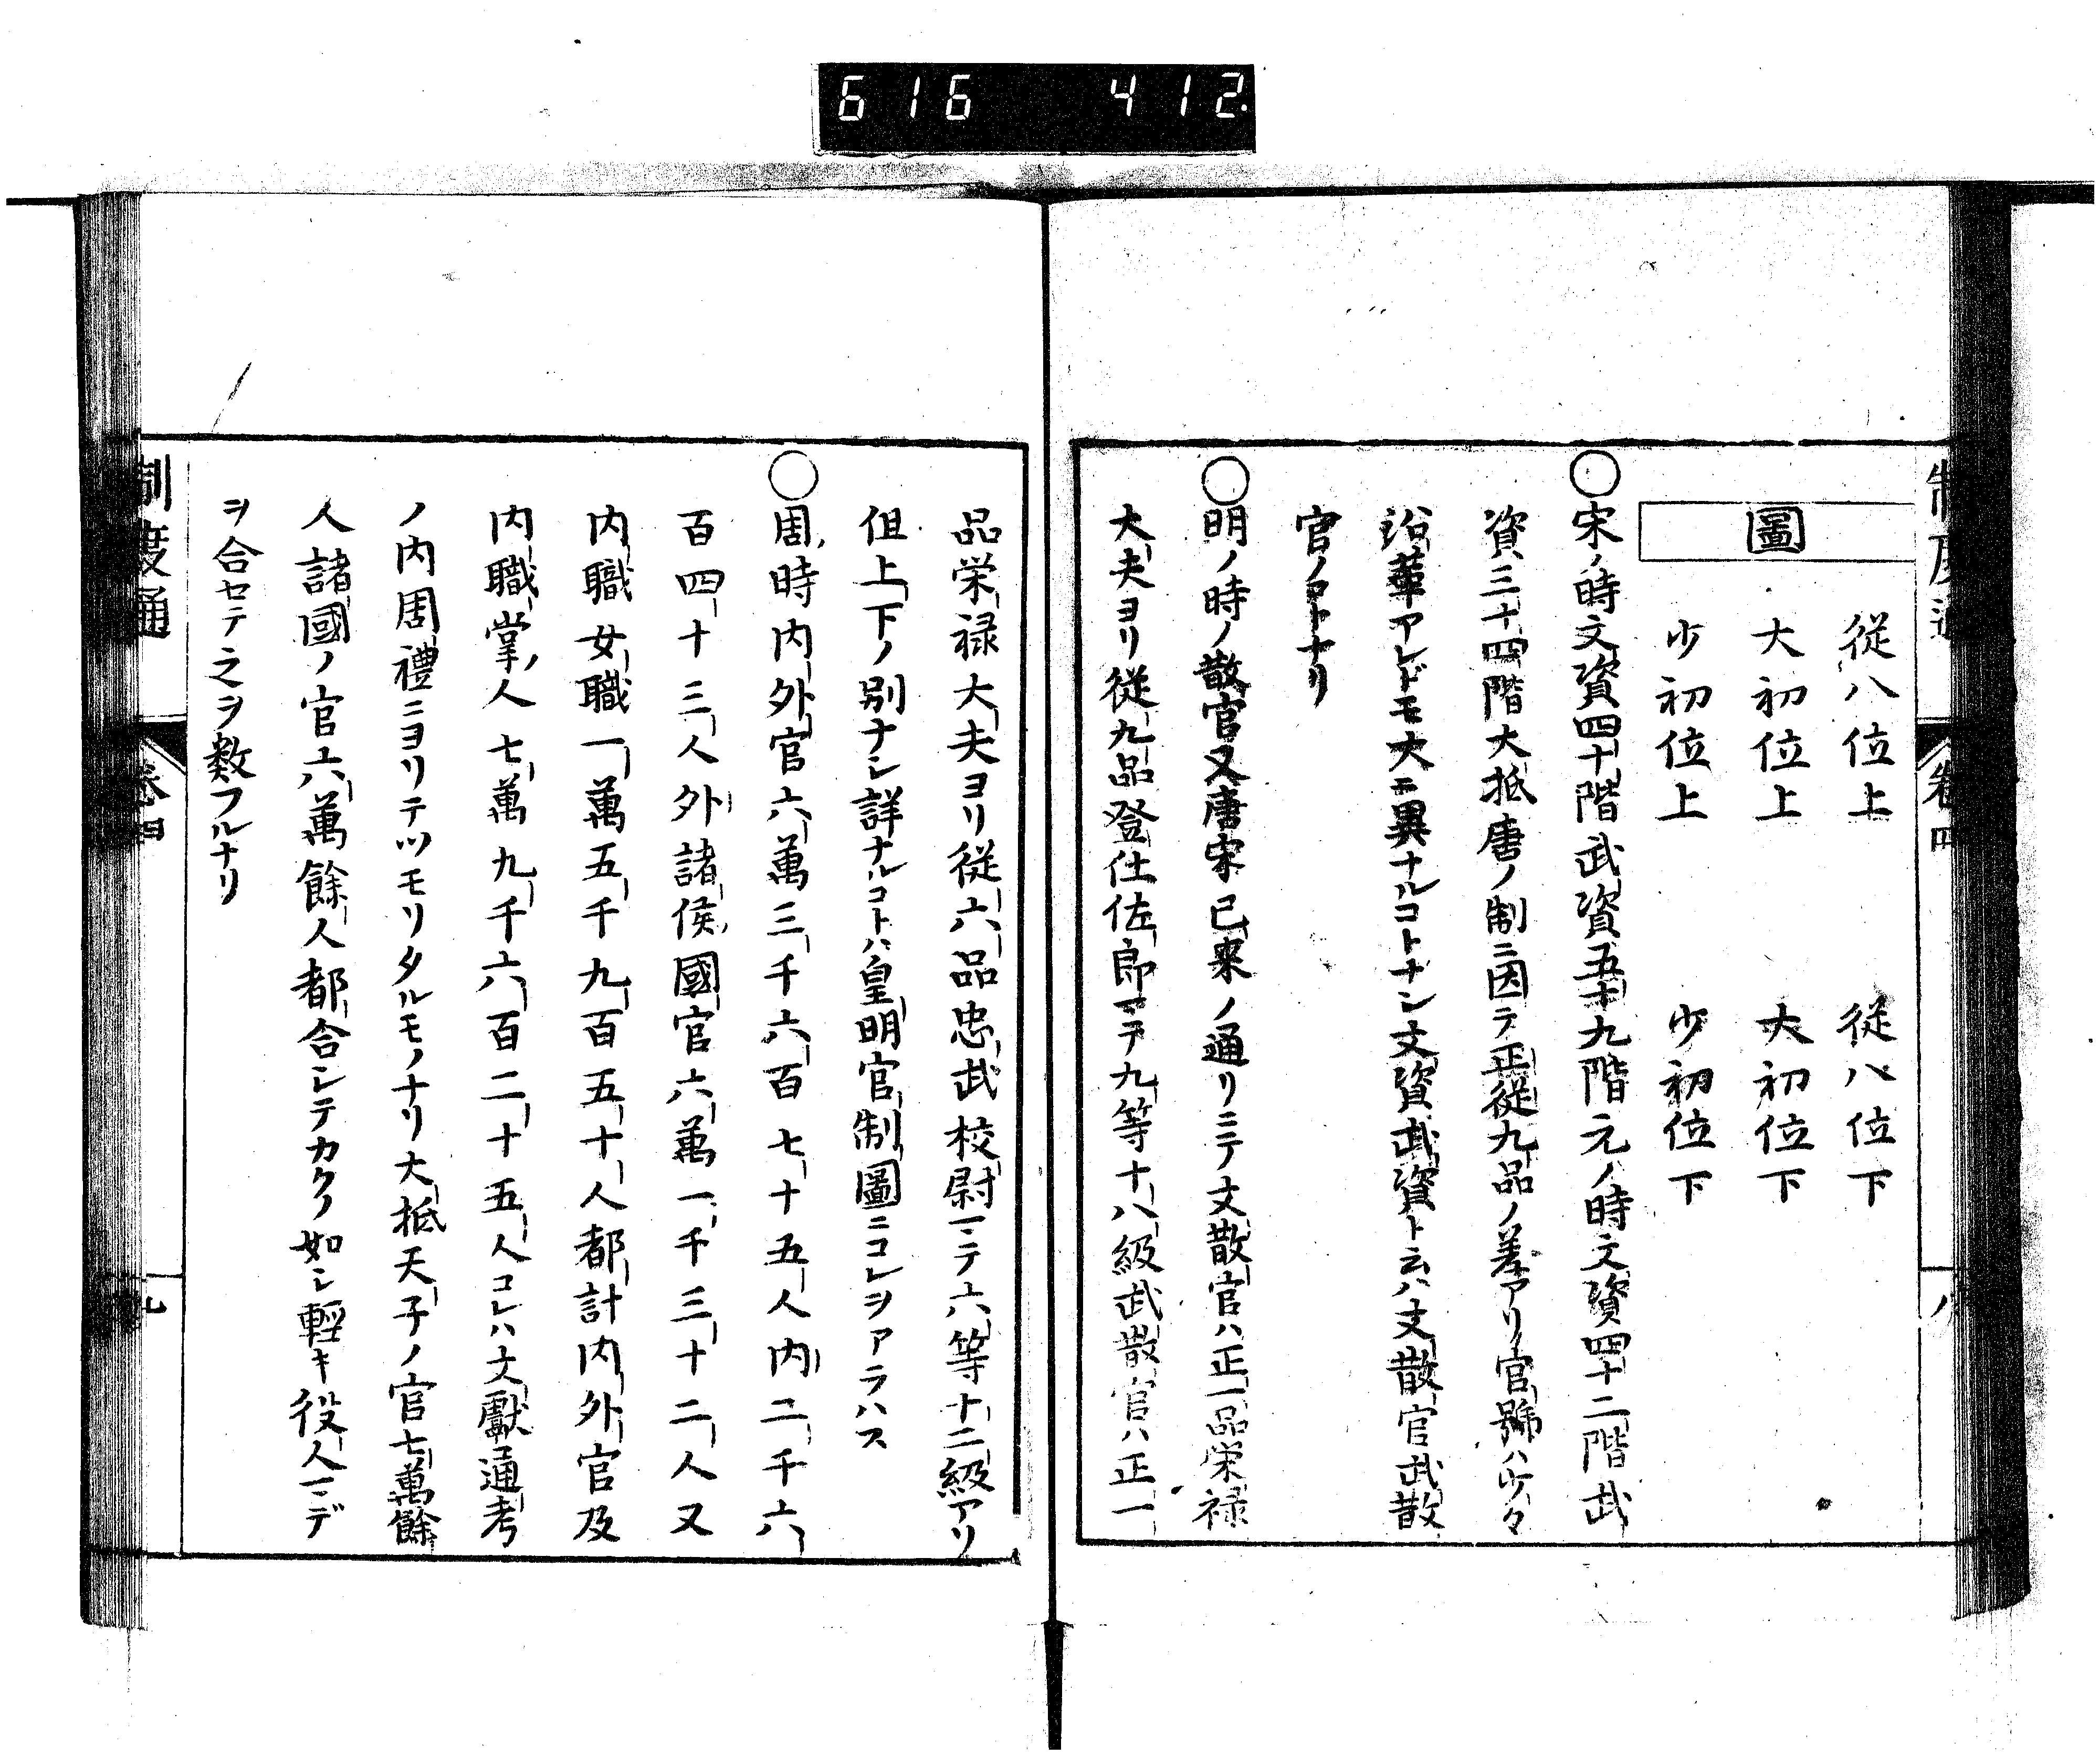 616 412
制度通
卷四
八
圖
從八位上 從八位下
大初位上 大初位下
少初位上 少初位下
○宋ノ時文資四十階武資五十九階元ノ時文資四十二階武
資三十四階大抵唐ノ制ニ因テ正從九品ノ差アリ官號ハ少々
沿革アレドモ大ニ異ナルコトナシ文資武資ト云ハ文散官武散
官ノコトナリ
○明ノ時ノ散官又唐宋已來ノ通リニテ文散官ハ正一品栄禄
大夫ヨリ從九品登仕佐郎マテ九等十八級武散官ハ正一
品栄禄大夫ヨリ從六品忠武校尉マテ六等十二級アリ
但上下ノ別ナシ詳ナルコトハ皇明官制圖ニコレヲアラハス
○周時内外官六萬三千六百七十五人内二千六
百四十三人外諸侯國官六萬一千三十二人又
内職女職一萬五千九百五十人都計内外官及
内職掌人七萬九千六百二十五人コレハ文獻通考
ノ内周禮ニヨリテツモリタルモノナリ大抵天子ノ官七萬餘
人諸國ノ官六萬餘人都合シテカクノ如シ輕キ役人マデ
ヲ合セテ之ヲ數フルナリ
制度通
卷四
九